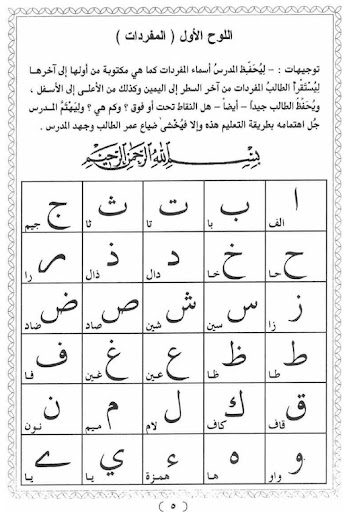 اللوح الأول ( المفردات )
توجيهات : – ليُحَفِّظ المدرسُ أسماء المفردات كما هي مكتوبة من أولها إلى آخرها
ليُسْتَقْرأ الطالبُ المفردات من آخر السطر إلى اليمين وكذلك من الأعلى إلى الأسفل ،
ويحُفَّظُ الطالب جيداً – أيضاً – هل النقاط تحت أو فوق ؟ وكم هي ؟ وليَهْتَمَّ المدرس
جُل اهتمامه بطريقة التعليم هذه وإلا فيُخْشى ضياع عمر الطالب وجهد المدرس .
بِسْمِ اللهِ الرَّحْمنِ الرَّحِيمِ
ا ب ت ث ج
الف با تا ثا جيم
ح خ د ذ ر
حا خا دال ذال را
ز س ش ص ض
زا سين شين صاد ضاد
ط ظ ع غ ف
طا ظا عين غين فا
ق ك ل م ن
قاف كاف لام ميم نون
و ه ء ي ے
واو ها همزة يا يا
( ٥ )